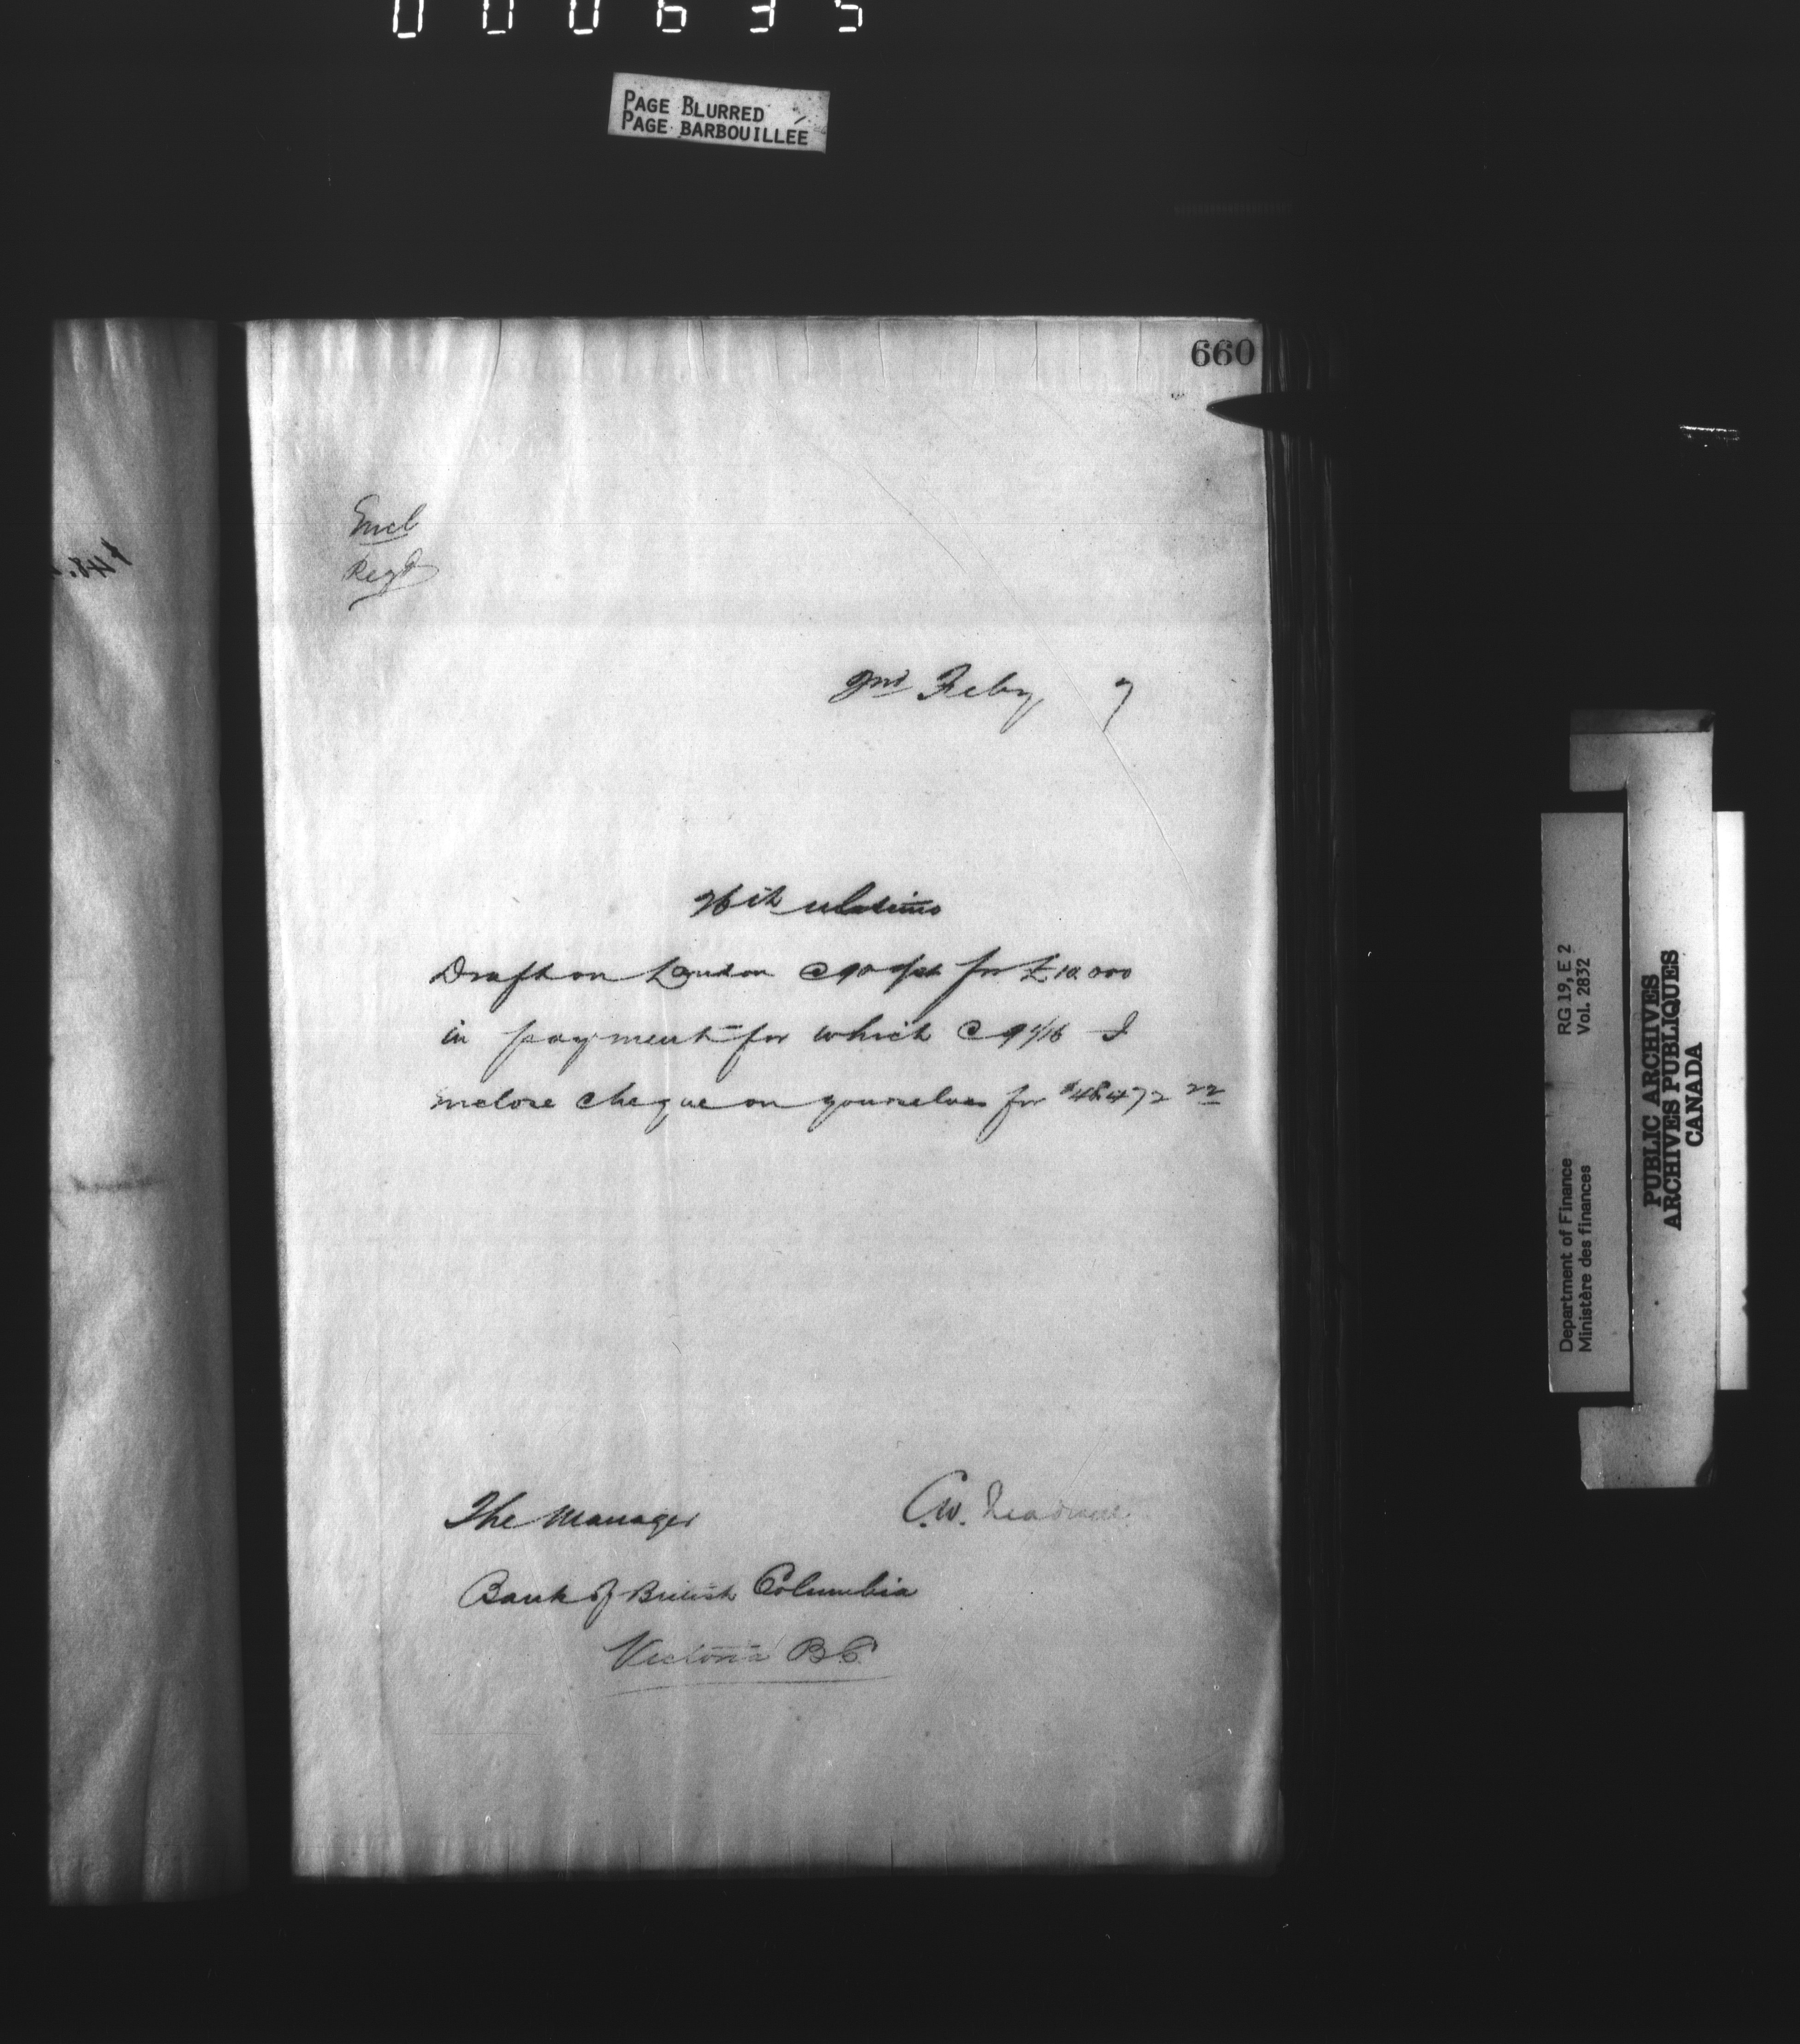 000635
PAGE BLURRED
PAGE BARBOUILLÉE
660
Encl
Regd
2nd Feby 7
26th ultimo
Draft on London @ 90 d/st for £10.000
in payment for which @ 9 1/16 I
inclose cheque on yourselves for $48.472 22
The Manager C.W.
Bank of British Columbia
Victoria B.C.
$48.
RG 19, E 2
Vol. 2832
Department of Finance
Ministère des finances
PUBLIC ARCHIVES
ARCHIVES PUBLIQUES
CANADA